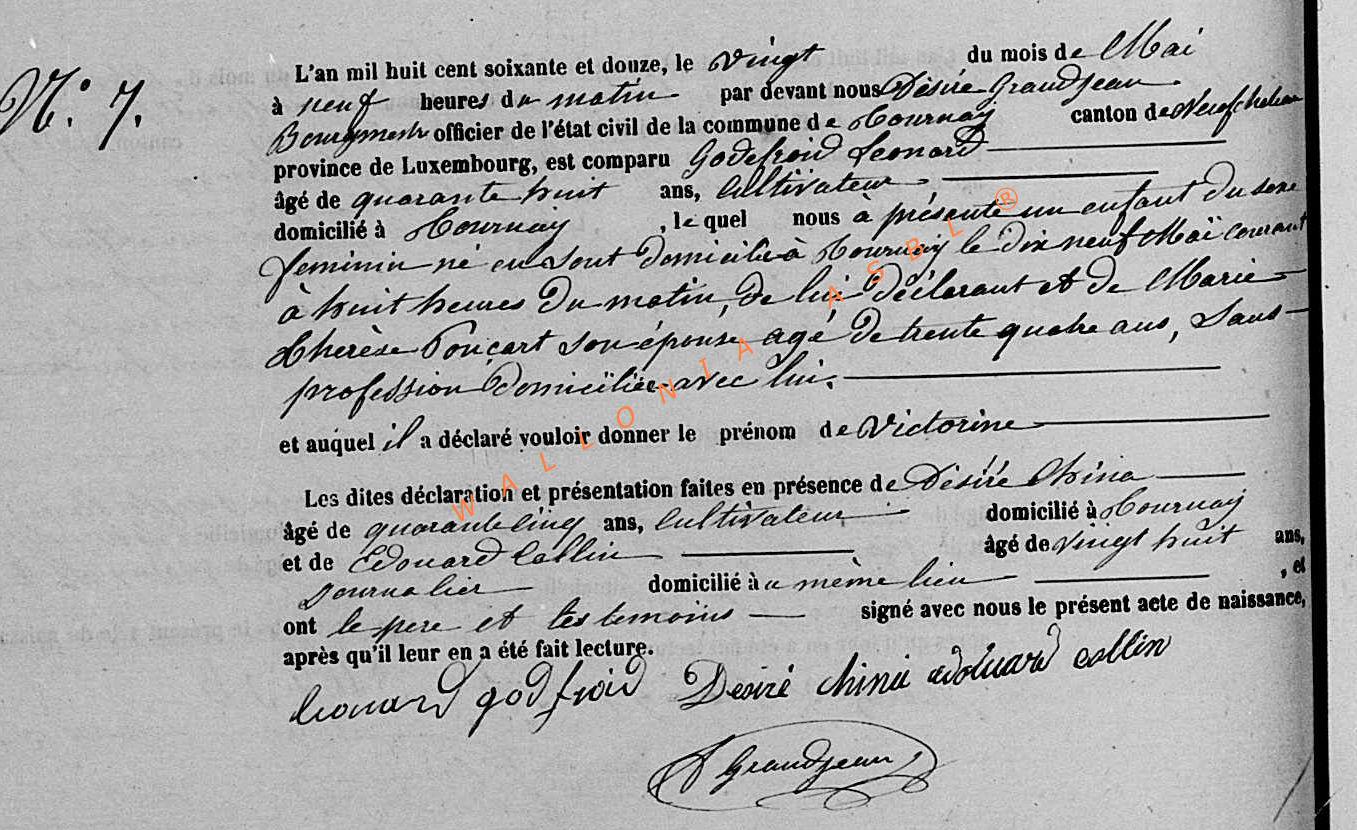 N.° 7.
L'an mil huit cent soixante et douze, le vingt du mois de Mai
à neuf heures du matin par devant nous Désiré Grandjean
Bourgmestre officier de l'état civil de la commune de Tournay canton de Neufchateau
province de Luxembourg, est comparu Godefroid Leonard
âgé de quarante huit ans, Cultivateur,
domicilié à Tournay, le quel nous à présenté un enfant du sexe
feminin né en sont domicile à Tournay le dix neuf Maï courant
à huit heures du matin, de lui déclarant et de Marie
Thérèse Ponçart son épouse agé de trente quatre ans, Sans
profession domiciliée avec lui.
et auquel il a déclaré vouloir donner le prénom de Victorine
Les dites déclaration et présentation faites en présence de Désiré China
âgé de quarante cinq ans, Cultivateur domicilié à Tournay
et de Edouard Collin âgé de vingt huit ans,
Journalier domicilié au même lieu, et
ont le pere et les temoins signé avec nous le présent acte de naissance,
après qu'il leur en a été fait lecture.
leonard godfroid Desiré china edouard collin
D Grandjean
WALLONIA ASBL ®